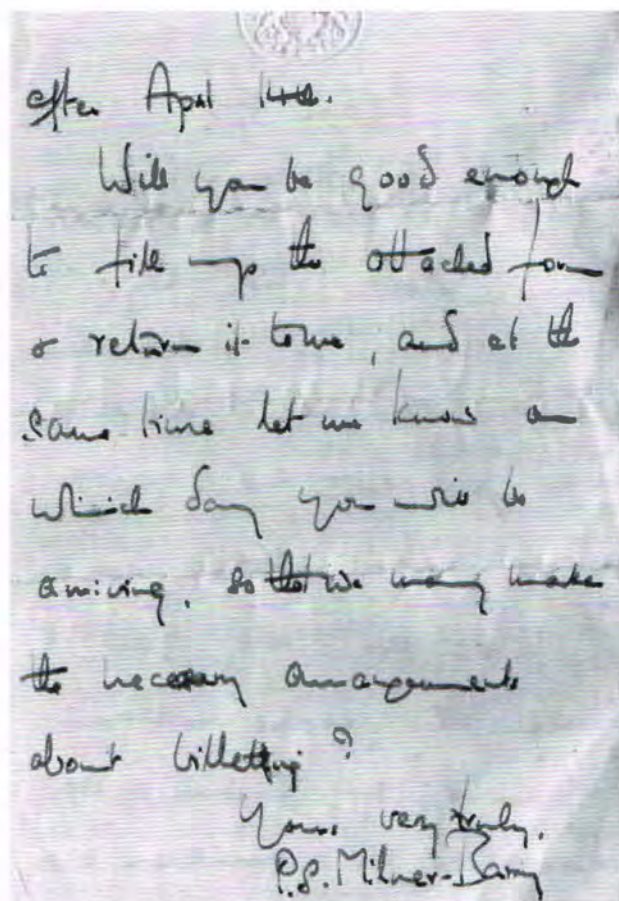 after April 14th.
Will you be good enough
to fill up the attached form
& return it to me, and at the
same time let me know on
which day you will be
arriving, so that we may make
the necessary arrangements
about billetting?
Yours very truly,
P.S. Milner-Barry